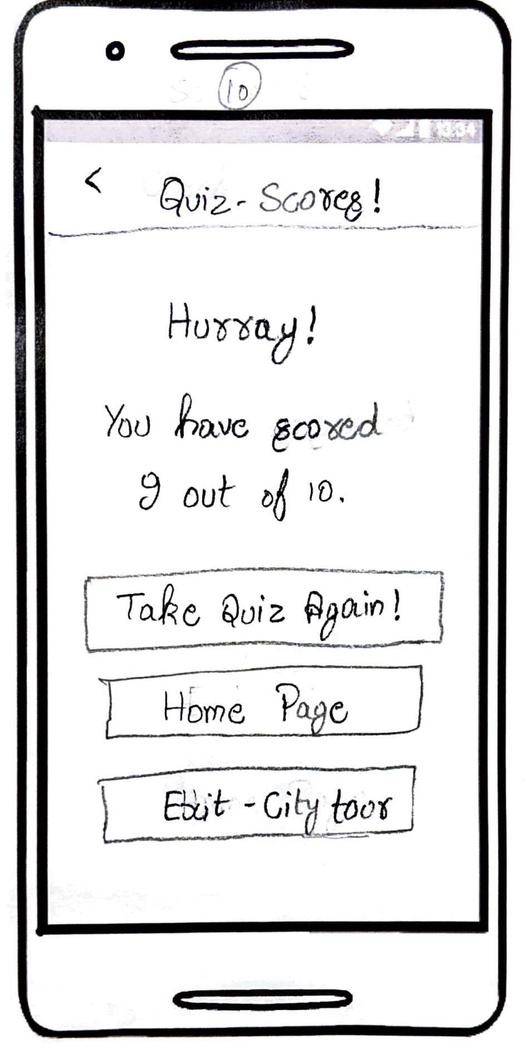 10
<
Quiz - Scores!
Hurray!
You have scored
9 out of 10.
Take Quiz Again!
Home Page
Exit - City tour